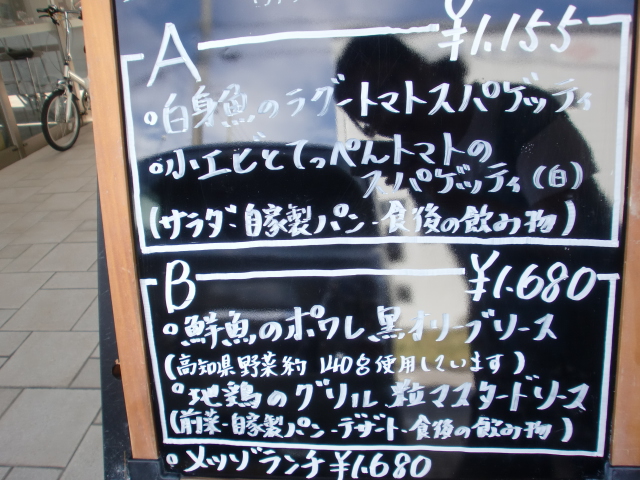 A ¥1.155
○白身魚のラグートマトスパゲッティ
○小エビとてっぺんトマトの
スパゲッティ(白)
(サラダ・自家製パン・食後の飲み物)
B ¥1.680
○鮮魚のポワレ黒オリーブソース
(高知県野菜約140g使用しています)
○地鶏のグリル粒マスタードソース
(前菜・自家製パン・デザート・食後の飲み物)
○メッゾランチ¥1.680